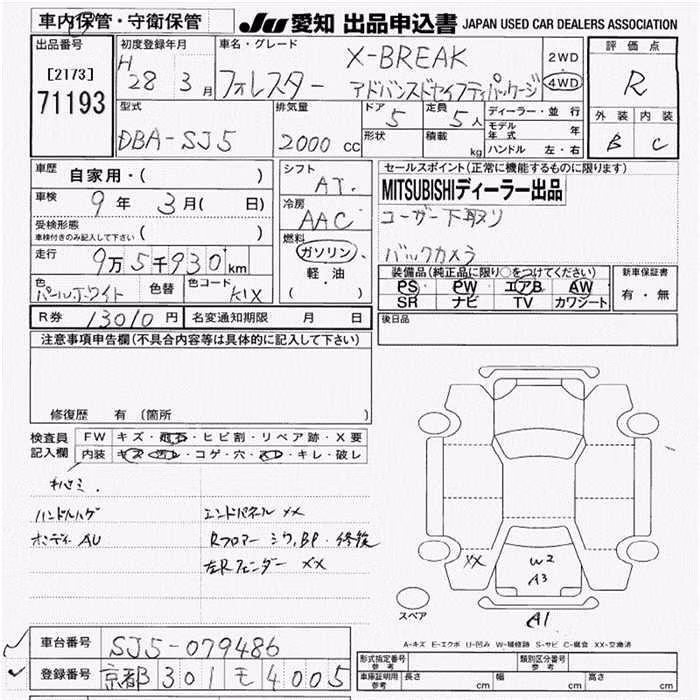 車内保管・守衛保管
JU 愛知 出品申込書 JAPAN USED CAR DEALERS ASSOCIATION
出品番号
[2173]
71193
初度登録年月
H 28 3 月
車名・グレード
X-BREAK
フォレスター アドバンスドセイフティパッケージ
2WD
4WD
評価点
R
外装 内装
B C
型式
DBA-SJ5
排気量
2000 cc
ドア 5
形状
定員 5人
積載 kg
ディーラー・並行
モデル年式 年
ハンドル 左・右
車歴 自家用・( )
車検 9年 3月( 日)
受検形態
車検付きのみ記入して下さい ( )
走行 9万5千930km
色 パールホワイト 色替 色コード K1X
シフト AT.
冷房 AAC
燃料
ガソリン
軽油
( )
セールスポイント(正常に機能するものに限ります)
MITSUBISHIディーラー出品
ユーザー下取り
バックカメラ
装備品(純正品に限り○をつけてください)
PS PW エアB AW
SR ナビ TV カワシート
新車保証書
有・無
R券 13010円 名変通知期限 月 日
後日品
注意事項申告欄(不具合内容等は具体的に記入して下さい)
修復歴 有(箇所
検査員記入欄
FW キズ・飛石・ヒビ割・リペア跡・X要
内装 キズ・汚レ・コゲ・穴・スレ・キレ・破レ
ハンドルハゲ エンドパネル XX
ボディ AU Rフロアー シワ,BP・修復
左Rフェンダー XX
XX
W2
A3
A1
スペア
A-キズ E-エクボ U-凹み W-補修跡 S-サビ C-腐食 XX-交換済
車台番号 SJ5-079486
登録番号 京都 301 モ 4005
形式指定番号 参考
類別区分番号 参考
車庫証明用 参考 長さ cm 幅 cm 高さ cm